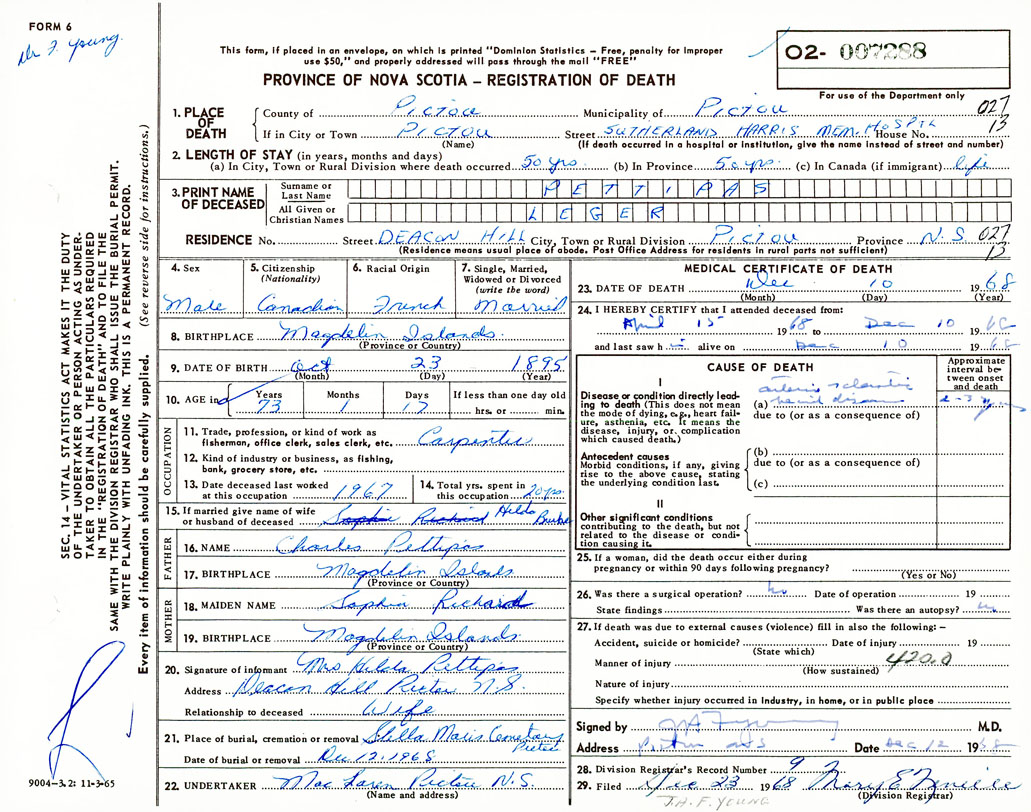 FORM 6
Dr F. Young.
This form, if placed in an envelope, on which is printed "Dominion Statistics – Free, penalty for improper
use $50," and properly addressed will pass through the mail "FREE"
PROVINCE OF NOVA SCOTIA – REGISTRATION OF DEATH
02- 007288
For use of the Department only
1. PLACE OF DEATH
County of Pictou Municipality of Pictou 027
If in City or Town Pictou Street SUTHERLAND HARRIS MEM. HOSPTL House No. 13
(Name) (If death occurred in a hospital or institution, give the name instead of street and number)
2. LENGTH OF STAY (in years, months and days)
(a) In City, Town or Rural Division where death occurred 50 yrs. (b) In Province 50 yrs. (c) In Canada (if immigrant) life
3. PRINT NAME OF DECEASED
Surname or Last Name PETTIPAS
All Given or Christian Names LEGER
RESIDENCE No. Street DEACON HILL City, Town or Rural Division Pictou Province N.S. 027
(Residence means usual place of abode. Post Office Address for residents in rural parts not sufficient) 13
4. Sex
Male
5. Citizenship
(Nationality)
Canadian
6. Racial Origin
French
7. Single, Married,
Widowed or Divorced
(write the word)
Married
8. BIRTHPLACE Magdelin Islands.
(Province or Country)
9. DATE OF BIRTH Oct 23 1895
(Month) (Day) (Year)
10. AGE in
Years Months Days If less than one day old
73 1 17 hrs. or min.
OCCUPATION
11. Trade, profession, or kind of work as
fisherman, office clerk, sales clerk, etc. Carpenter
12. Kind of industry or business, as fishing,
bank, grocery store, etc.
13. Date deceased last worked
at this occupation 1967
14. Total yrs. spent in
this occupation 20 yrs.
15. If married give name of wife
or husband of deceased Sophie Richard Hilda Burke
FATHER
16. NAME Charles Pettipas
17. BIRTHPLACE Magdelin Islands
(Province or Country)
MOTHER
18. MAIDEN NAME Sophia Richard
19. BIRTHPLACE Magdelin Islands.
(Province or Country)
20. Signature of informant Mrs Hilda Pettipas
Address Deacon Hill Pictou N.S.
Relationship to deceased Wife
21. Place of burial, cremation or removal Stella Maris Cemetary Pictou
Date of burial or removal Dec 12, 1968
22. UNDERTAKER Mac Laren Pictou N.S.
(Name and address)
MEDICAL CERTIFICATE OF DEATH
23. DATE OF DEATH Dec 10 1968
(Month) (Day) (Year)
24. I HEREBY CERTIFY that I attended deceased from:
April 15 1968 to Dec 10 1968
and last saw him alive on Dec 10 1968
CAUSE OF DEATH
Approximate
interval be-
tween onset
and death
I
Disease or condition directly lead-
ing to death (This does not mean
the mode of dying, e.g., heart fail-
ure, asthenia, etc. It means the
disease, injury, or complication
which caused death.)
arterio sclerotic
(a) heart disease 2-3 years
due to (or as a consequence of)
Antecedent causes
Morbid conditions, if any, giving
rise to the above cause, stating
the underlying condition last.
(b)
due to (or as a consequence of)
(c)
II
Other significant conditions
contributing to the death, but not
related to the disease or condi-
tion causing it.
25. If a woman, did the death occur either during
pregnancy or within 90 days following pregnancy?
(Yes or No)
26. Was there a surgical operation? no Date of operation 19
State findings Was there an autopsy? no
27. If death was due to external causes (violence) fill in also the following: –
Accident, suicide or homicide? Date of injury 19
(State which)
Manner of injury 420.0
(How sustained)
Nature of injury
Specify whether injury occurred in Industry, in home, or in public place
Signed by J H F Young M.D.
Address Pictou N.S Date Dec 12 1968
28. Division Registrar's Record Number 9
29. Filed Dec 23 1968 Mary E
(Division Registrar)
J.H.F. YOUNG
SEC. 14 – VITAL STATISTICS ACT MAKES IT THE DUTY
OF THE UNDERTAKER OR PERSON ACTING AS UNDER-
TAKER TO OBTAIN ALL THE PARTICULARS REQUIRED
IN THE "REGISTRATION OF DEATH" AND TO FILE THE
SAME WITH THE DIVISION REGISTRAR WHO SHALL ISSUE THE BURIAL PERMIT.
WRITE PLAINLY WITH UNFADING INK. THIS IS A PERMANENT RECORD.
Every item of information should be carefully supplied. (See reverse side for instructions.)
9004-3.2: 11-3-65